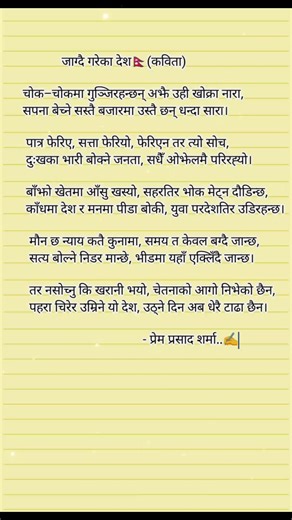 जाग्दै गरेका देश🇳🇵 (कविता)
चोक–चोकमा गुञ्जिरहन्छन् अझै उही खोक्रा नारा,
सपना बेच्ने सस्तै बजारमा उस्तै छन् धन्दा सारा।
पात्र फेरिए, सत्ता फेरियो, फेरिएन तर त्यो सोच,
दुःखका भारी बोक्ने जनता, सधैँ ओझेलमै परिरह्यो।
बाँझो खेतमा आँसु खस्यो, सहरतिर भोक मेट्न दौडिन्छ,
काँधमा देश र मनमा पीडा बोकी, युवा परदेशतिर उडिरहन्छ।
मौन छ न्याय कतै कुनामा, समय त केवल बग्दै जान्छ,
सत्य बोल्ने निडर मान्छे, भीडमा यहाँ एक्लिँदै जान्छ।
तर नसोच्नु कि खरानी भयो, चेतनाको आगो निभेको छैन,
पहरा चिरेर उम्रिने यो देश, उठ्ने दिन अब धेरै टाढा छैन।
- प्रेम प्रसाद शर्मा..✍️